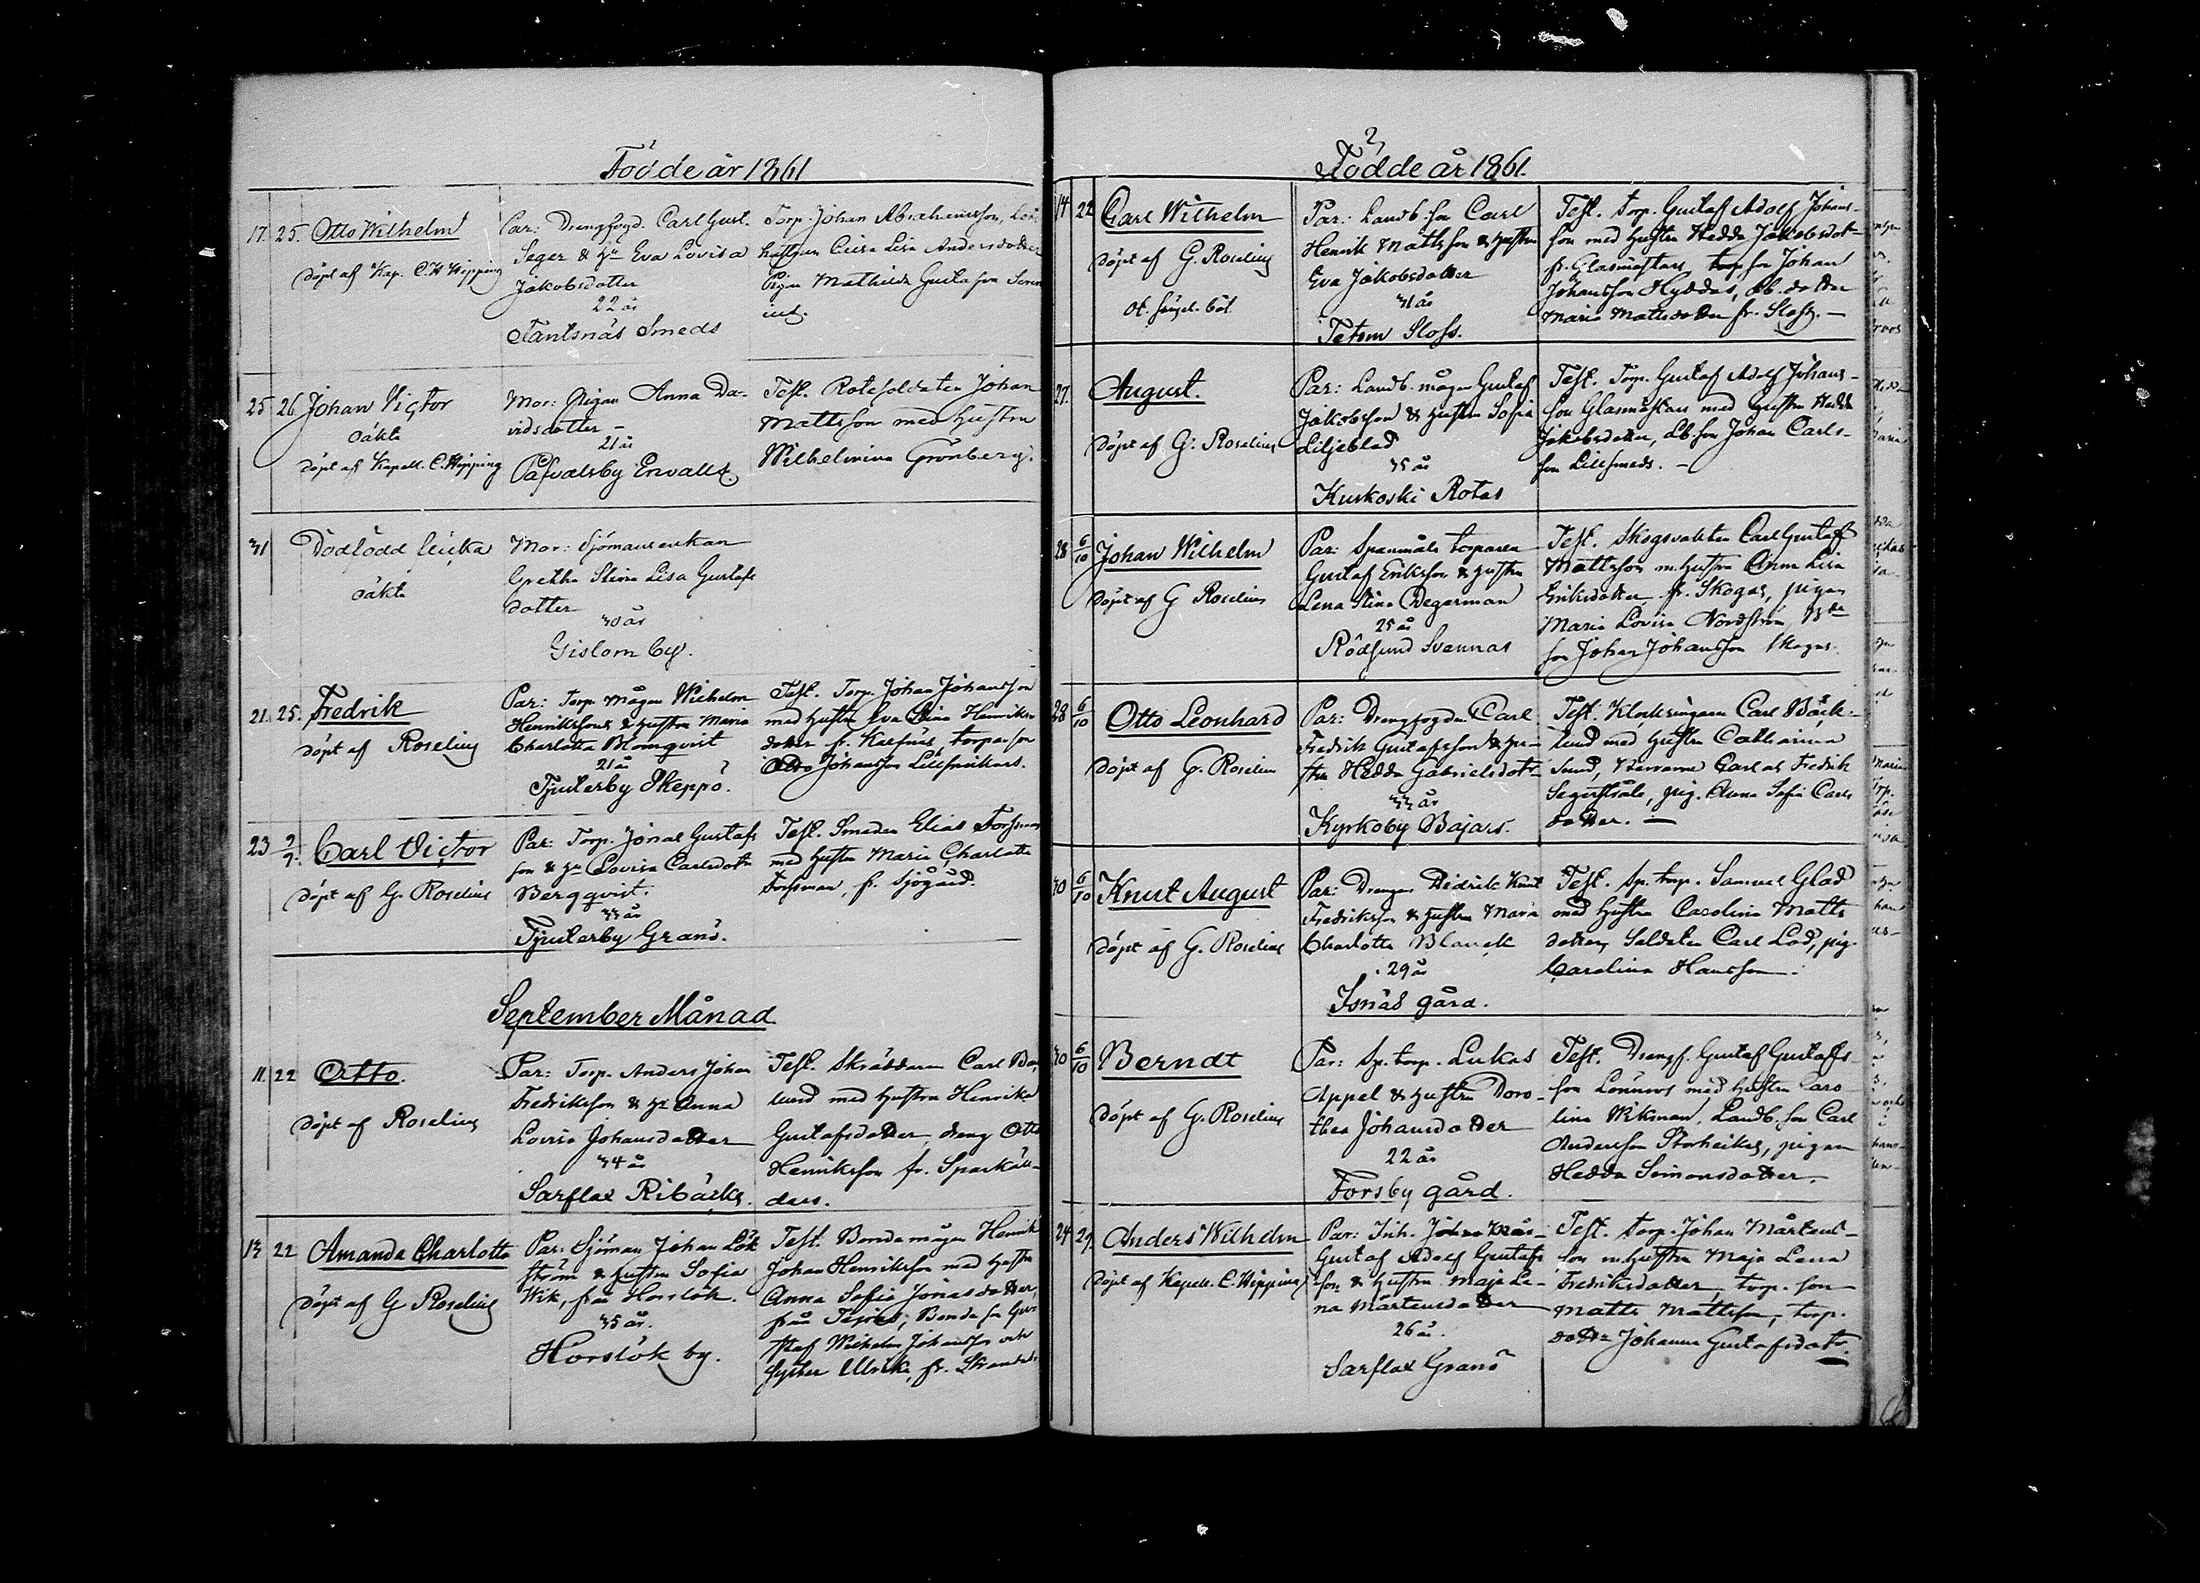 Födde år 1861
17. 25. Otto Wilhelm
döpt af Kap. C. H. Wipping
Par: Drengfogd. Carl Gust.
Seger & H. Eva Lovisa
Jakobsdotter
22 år
Tantsnäs Smeds
Torp. Johan Abrahamsson,
hustrun Caisa Lisa Andersdotter
Pigan Mathilda Gustafson
25 26 Johan Victor
oäkta
döpt af Kapell. C. Wipping
Mor: Pigan Anna Da-
vidsdotter –
21 år
Påfvalsby Envalls.
Test. Rotesoldaten Johan
Mattsson med Hustru
Wilhelmina Grönberg.
31 Dödfödd flicka
oäkta
Mor: Sjömansenkan
Gretha Stina Lisa Gustafs
dotter
30 år
Gislom by.
21. 25. Fredrik
döpt af Roselius
Par: Torp. mågen Wilhelm
Henriksson & hustru Maria
Charlotta Blomqvist
21 år
Tjusterby Skeppo.
Test. Torp. Johan Johansson
med hustru Eva Stina Henriks-
dotter fr. Kalfnäs, torpareson
Otto Johansson
23 2/9. Carl Victor
döpt af G. Roselius
Par: Torp. Jonas Gustafs
son & H. Lovisa Carlsdotr
Bergqvist.
33 år
Tjusterby Granö.
Test. Smeden Elias Forsman
med hustru Maria Charlotta
Forsman, fr. Sjögård.
September Månad
11. 22 Otto.
döpt af Roselius
Par: Torp. Anders Johan
Fredriksson & H. Anna
Lovisa Johansdotter
34 år
Sarflax Ribäcks.
Test. Skräddaren Carl
lund med hustru Henrika
Gustafsdotter, dreng Otto
Henriksson fr. Sparkull-
ders.
13 22 Amanda Charlotta
döpt af G Roselius
Par: Sjöman Johan Lök
ström & hustru Sofia
Wik, från Horslök.
35 år.
Horslök by.
Test. Bondemågen Henrik
Johan Henriksson med hustru
Anna Sofia Jonasdotter,
från Tesjöes; Bondeson Gus-
staf Wilhelm Johansson och
Syster Ulrika, fr. Strands
2,
Födde år 1861.
14 22 Carl Wilhelm
döpt af G. Roselius
Par: Landb. son Carl
Henrik Mattsson & hustru
Eva Jakobsdotter
31 år
Tetom Sloss.
Test. Torp. Gustaf Adolf Johans-
son med hustru Hedda Jakobsdot-
fr. Glasmästars, torp son Johan
Johansson Hyddas, Lb. dotter
Maria Mattsdotter fr. Sloss. –
27. August.
döpt af G. Roselius
Par: Landb. mågen Gustaf
Jakobsson & hustru Sofia
Liljeblad
35 år
Kurkoski Rotas
Test. Torp. Gustaf Adolf Johans-
son Glasmästars med hustru Hedda
Jakobsdotter, Lb. son Johan Carls-
son Lillsmeds. –
28 6/10 Johan Wilhelm
döpt af G Roselius
Par: Spanmåls torparen
Gustaf Eriksson & hustru
Lena Stina Degerman
25 år
Rödsund Svennas
Test. Skogsvakten Carl Gustaf
Mattsson m. hustru Anna Lisa
Eriksdotter fr. Skogas, pigan
Maria Lovisa Nordström
son Johan Johansson Skogas.
28 6/10 Otto Leonhard
döpt af G. Roselius
Par: Drengfogden Carl
Fredrik Gustafsson & hu-
stru Hedda Gabrielsdotr
33 år
Kyrkoby Bajars.
Test. Klockringaren Carl Bäck-
lund med hustru Catharina
Sund, Carl at Fredrik
Segerstråle, pig. Anna Sofia Carls
dotter. –
30 6/10 Knut August
döpt af G. Roselius
Par: Drengen Didrik Knut
Fredriksson & hustru Maria
Charlotta Blanck
29 år
Isnäs gård.
Test. Sp. torp. Samuel Glad
med hustru Carolina Matts
dotter, Soldaten Carl Lod, pig.
Carolina Hansson.
30 6/10 Berndt
döpt af G. Roselius
Par: Sp. torp. Lukas
Appel & hustru Doro-
thea Johansdotter
22 år
Forsby gård.
Test. Drengf. Gustaf Gustafs-
son Lonnros med hustru Caro-
lina Wikman, Landb. son Carl
Andersson Storheikas, pigan
Hedda Simonsdotter.
24 29. Anders Wilhelm
döpt af Kapell. C. Wipping
Par: Inh.
Gustaf Adolf Gustafs
son & hustru Maja Le-
na Mårtensdotter
26 år.
Sarflax Granö
Test. torp. Johan Mårtens-
son m. hustru Maja Lena
Fredriksdotter, torp. son
Matts Mattsson, torp.
dotter Johanna Gustafsdotr.